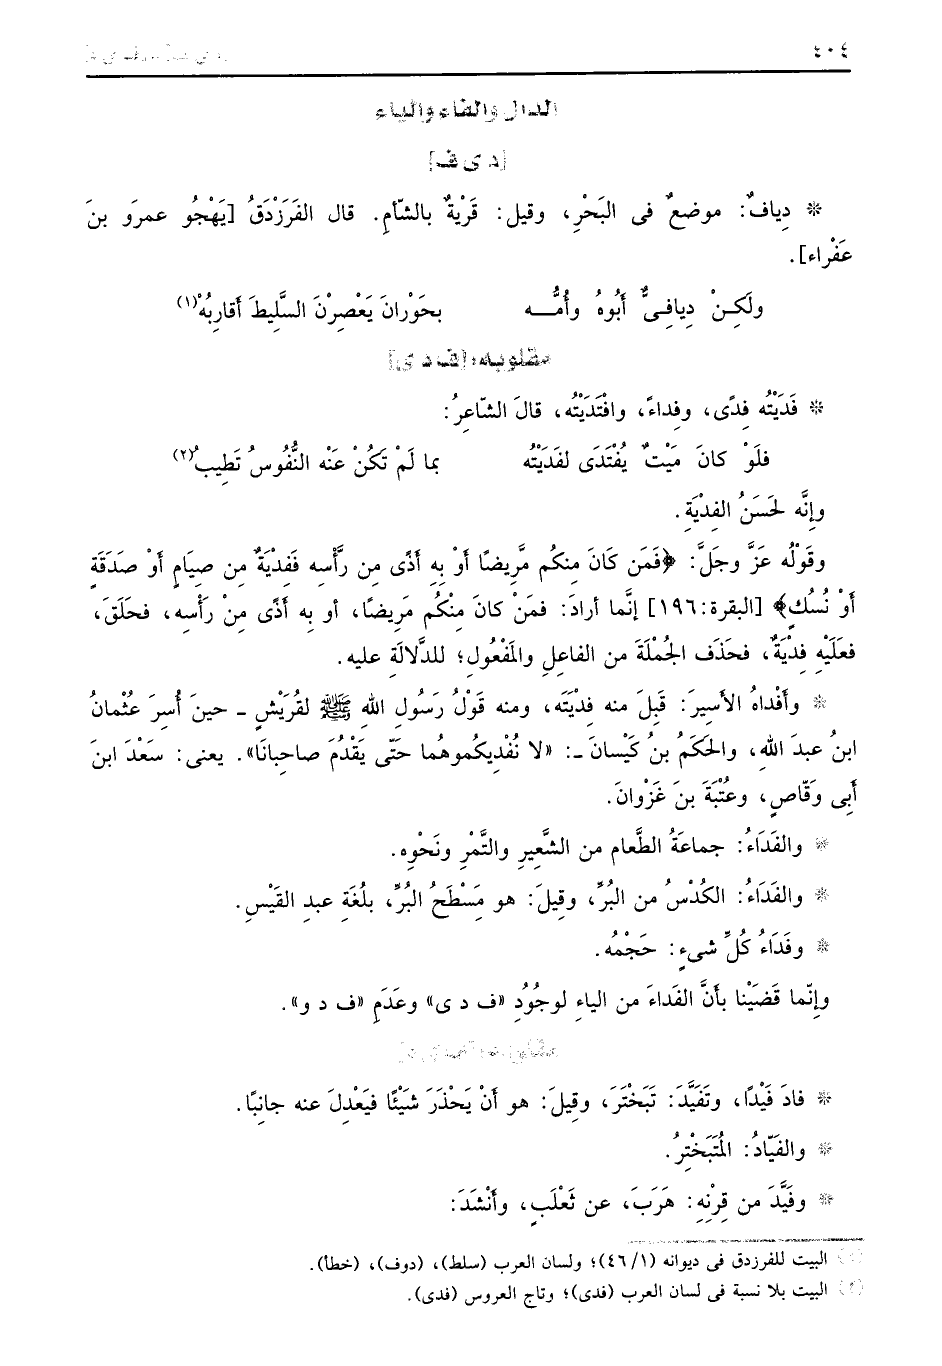 ٤٠٤
الدال والفاء والياء
[د ى ف]
* دِيافٌ: موضعٌ فى البَحْرِ، وقيل: قَرْيةٌ بالشّأمِ. قال الفَرَزْدَقُ [يَهْجُو عمرَو بنَ
عَفْراء].
ولَكِـنْ دِيافِـىٌّ أَبُوهُ وأُمُّـــه بحَوْرانَ يَعْصِرْنَ السَّلِيطَ أَقارِبُهْ(١)
مقلوبه: [ف د ى]
* فَدَيْتُه فِدًى، وفِداءً، وافْتَدَيْتُه، قالَ الشّاعِرُ:
فلَوْ كانَ مَيْتٌ يُفْتَدَى لفَدَيْتُه بما لَمْ تَكُنْ عَنْه النُّفُوسُ تَطِيبُ(٢)
وإِنَّه لحَسَنُ الفِدْيَةِ.
وقَوْلُه عَزَّ وجَلَّ: ﴿فَمَن كَانَ مِنكُم مَّرِيضًا أَوْ بِهِ أَذًى مِن رَّأْسِه فَفِدْيَةٌ مِن صِيَامٍ أَوْ صَدَقَةٍ
أَوْ نُسُكٍ﴾ [البقرة:١٩٦] إِنَّما أرادَ: فمَنْ كانَ مِنْكُم مَرِيضًا، أو به أَذًى مِنْ رَأْسِه، فحَلَقَ،
فعَلَيْهِ فِدْيَةٌ، فحَذَف الجُمْلَةَ من الفاعِلِ والمَفْعُولِ؛ للدَّلالَةِ عليه.
* وأَفْداهُ الأسِيرَ: قَبِلَ منه فِدْيَتَه، ومنه قَوْلُ رَسُولِ اللهِ ﷺ لقُرَيْشٍ ـ حينَ أُسِرَ عُثْمانُ
ابنُ عبدَ اللهِ، والحَكَمُ بنُ كَيْسانَ ـ: «لا نُفْدِيكُموهُما حَتَّى يَقْدُمَ صاحِبانَا». يعنى: سَعْدَ ابنَ
أَبِى وَقّاصٍ، وعُتْبَةَ بنَ غَزْوانَ.
* والفَدَاءُ: جماعَةُ الطَّعامِ من الشَّعِيرِ والتَّمْرِ ونَحْوِه.
* والفَدَاءُ: الكُدْسُ من البُرِّ، وقِيلَ: هو مَسْطَحُ البُرِّ، بلُغَةِ عبدِ القَيْسِ.
* وفَدَاءُ كُلِّ شىءٍ: حَجْمُه.
وإنّما قَضَيْنا بأَنَّ الفَداءَ من الياءِ لوجُودِ «ف د ى» وعَدَمِ «ف د و».
* فادَ فَيْدًا، وتَفَيَّدَ: تَبَخْتَرَ، وقِيلَ: هو أنْ يَحْذَرَ شَيْئًا فيَعْدِلَ عنه جانِبًا.
* والفَيّادُ: المُتَبَخْتِرُ.
* وفَيَّدَ من قِرْنِه: هَرَبَ، عن ثَعْلَبٍ، وأَنْشَدَ:
(١) البيت للفرزدق فى ديوانه (١/ ٤٦)؛ ولسان العرب (سلط)، (دوف)، (خطأ).
(٢) البيت بلا نسبة فى لسان العرب (فدى)؛ وتاج العروس (فدى).